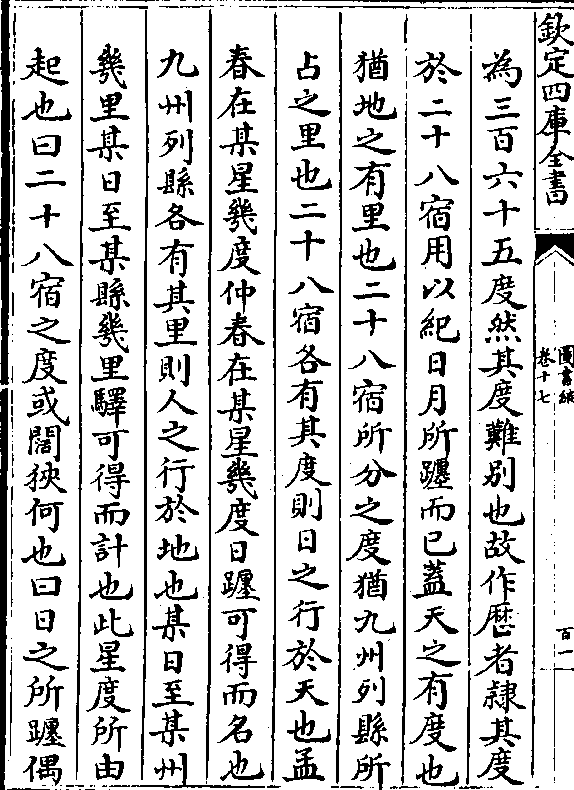 欽定四庫全書
圖書編
卷十七
百一
為三百六十五度然其度難別也故作厯者隷其度
於二十八宿用以紀日月所躔而已蓋天之有度也
猶地之有里也二十八宿所分之度猶九州列縣所
占之里也二十八宿各有其度則日之行於天也孟
春在某星幾度仲春在某星幾度日躔可得而名也
九州列縣各有其里則人之行於地也某日至某州
幾里某日至某縣幾里驛可得而計也此星度所由
起也曰二十八宿之度或闊狹何也曰日之所躔偶